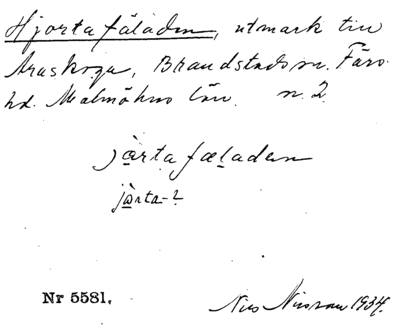 Hjortafäladen, utmark till
Araskoga, Brandstads sn. Färs
hd. Malmöhus län. n. 2.
jòrta fæladen
jòrta-?
Nr 5581.
Nils Nilsson 1934.